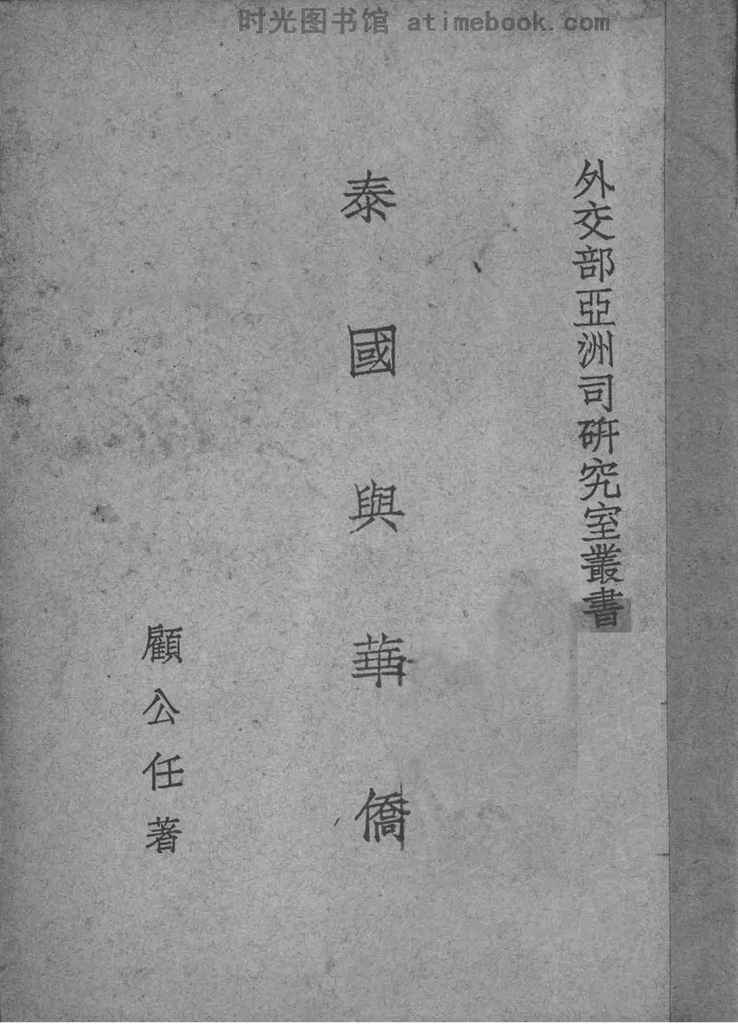 时光图书馆 atimebook.com
外交部亞洲司研究室叢書
泰國與華僑
顧公任著